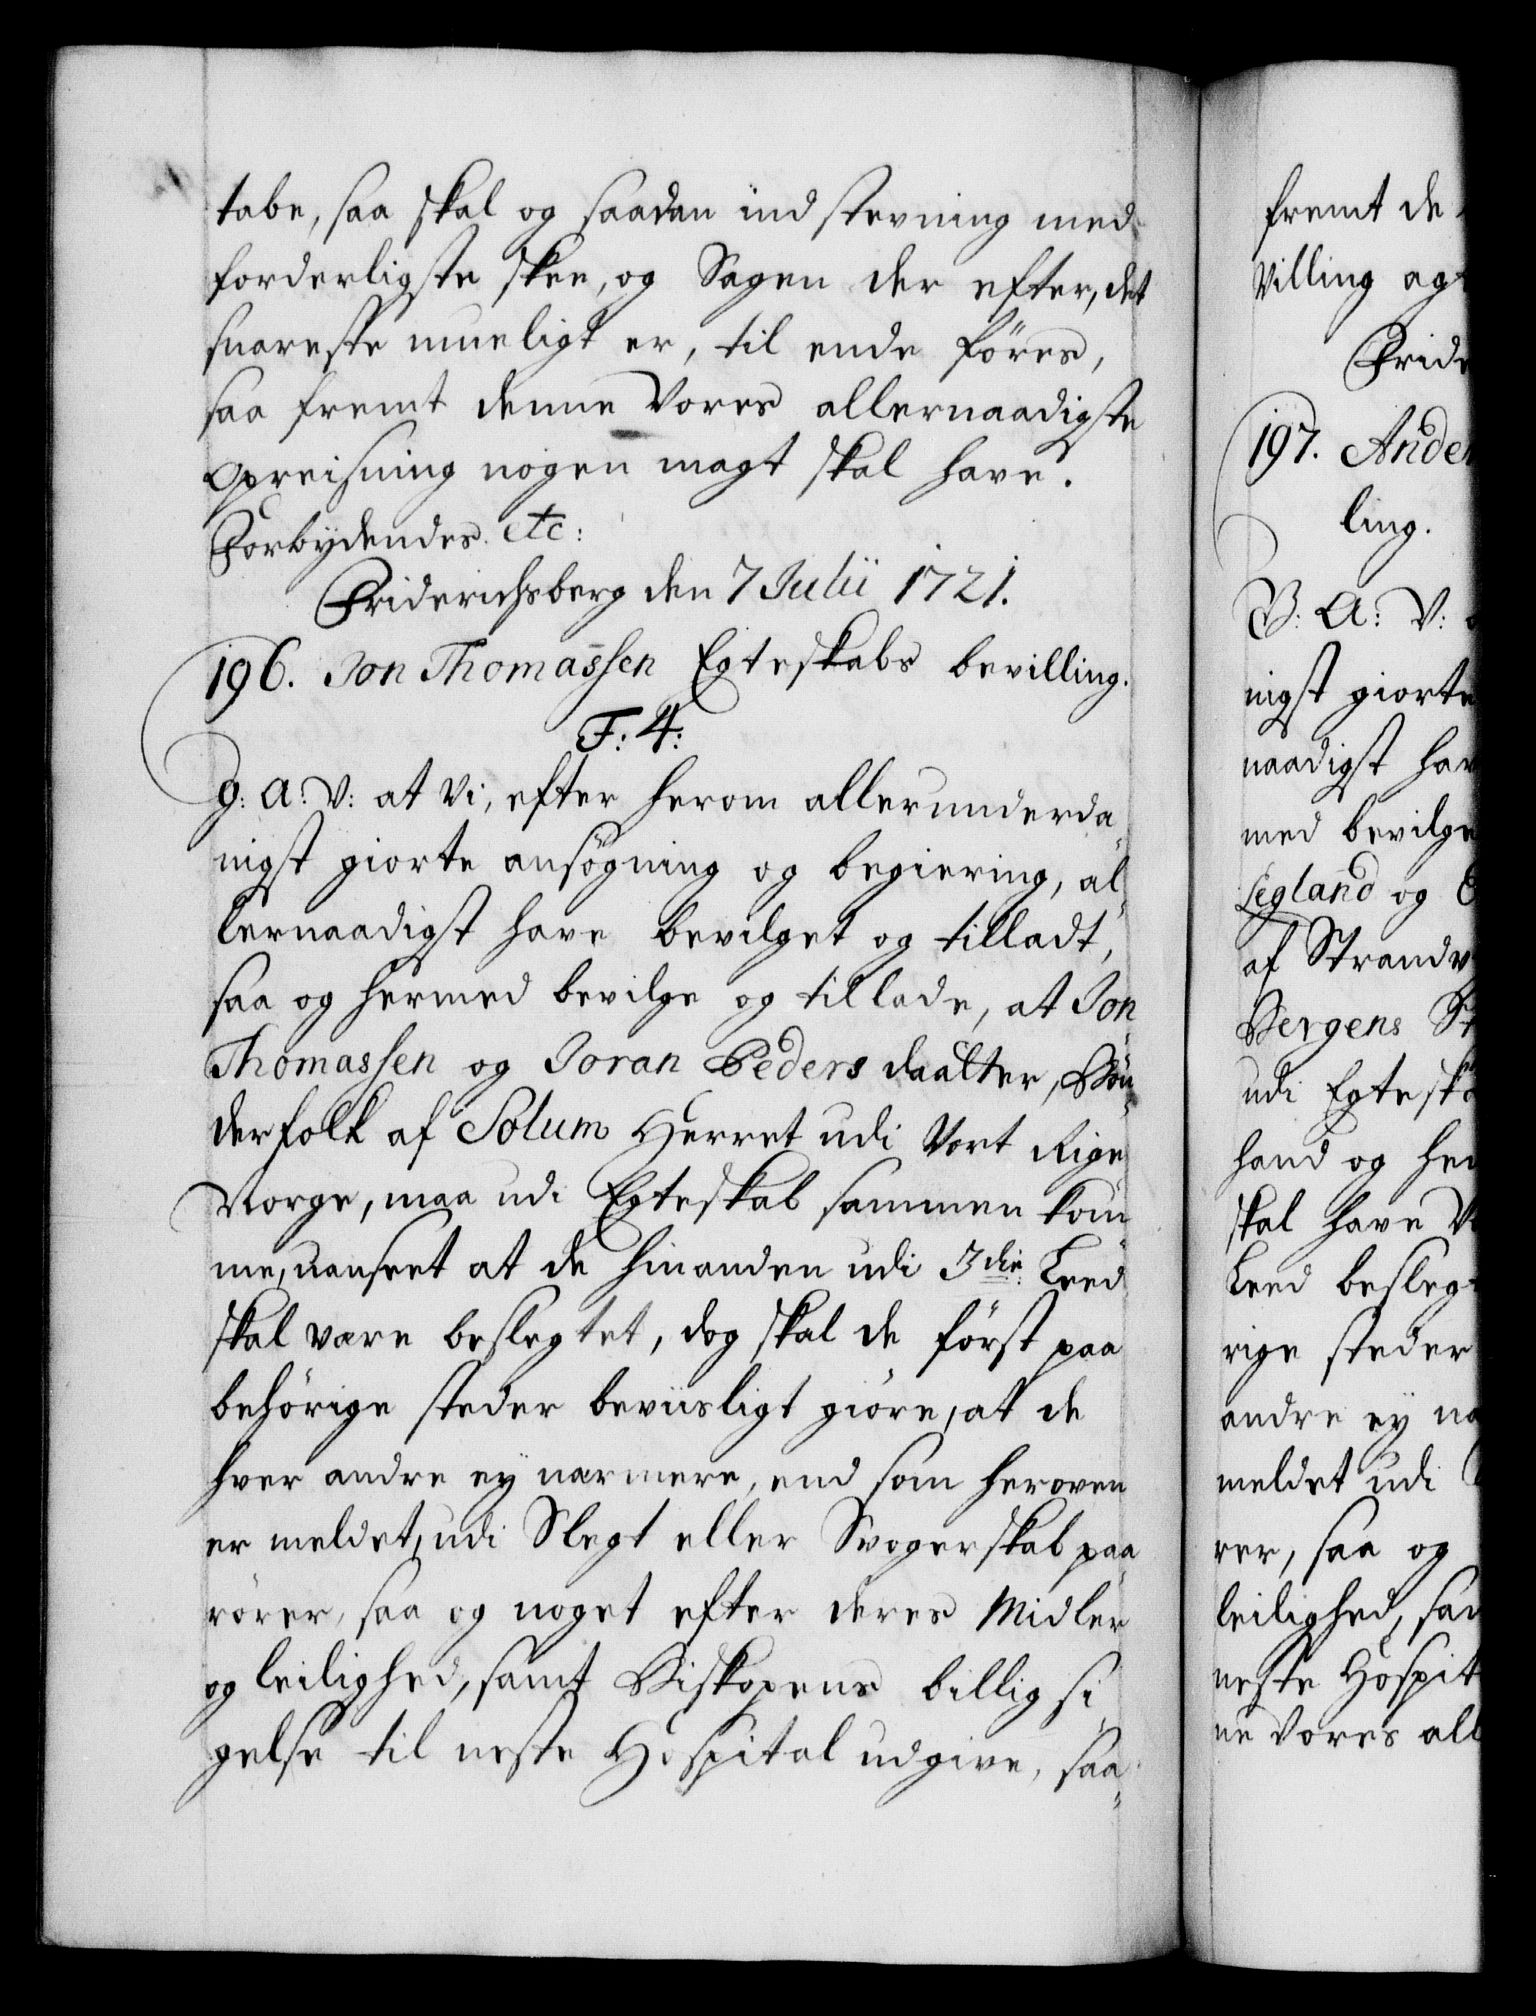 tabe, saa skal og saadan indstevning med
forderligste skee, og Sagen der efter, det
snareste mueligt er, til ende föres,
saa fremt denne Vores allernaadigste
opreisning nogen magt skal have.
Forbydendes etc:
Friderichsberg den 7 Julii 1721.
196. Jon Thomassen Egteskabs bevilling.
F: 4:
G: A: V: at Vi, efter herom allerunderda„
nigst giorte ansögning og begiering, al„
lernaadigst have bevilget og tilladt,
saa og hermed bevilge og tillade, at Jon
Thomassen og Joran Peders daatter, Bön„
derfolk af Solum Herret udi Vort Rige
Norge, maa udi Egteskab sammen kom„
me, uanseet at de hinanden udi 3die Leed
skal være beslegtet, dog skal de först paa
behörige steder beviisligt giöre, at de
hver andre ey nærmere, end som heroven
er meldet, udi Slegt eller Svogerskab paa„
rörer, saa og noget efter deres Midler
og leilighed, samt Biskopens billig si„
gelse til neste Hospital udgive, saa„
fremt de
Villing agt
Fride
197. Ander
ling.
G: A: V:
nigst giorte
naadigst hav
med bevilge
Segland og
af Strandv
Bergens St
udi Egteska
hand og hen
skal have V
Leed beslegt
rige steder
andre ey næ
meldet udi
rer, saa og
leilighed, sam
neste Hospit
ne Vores all